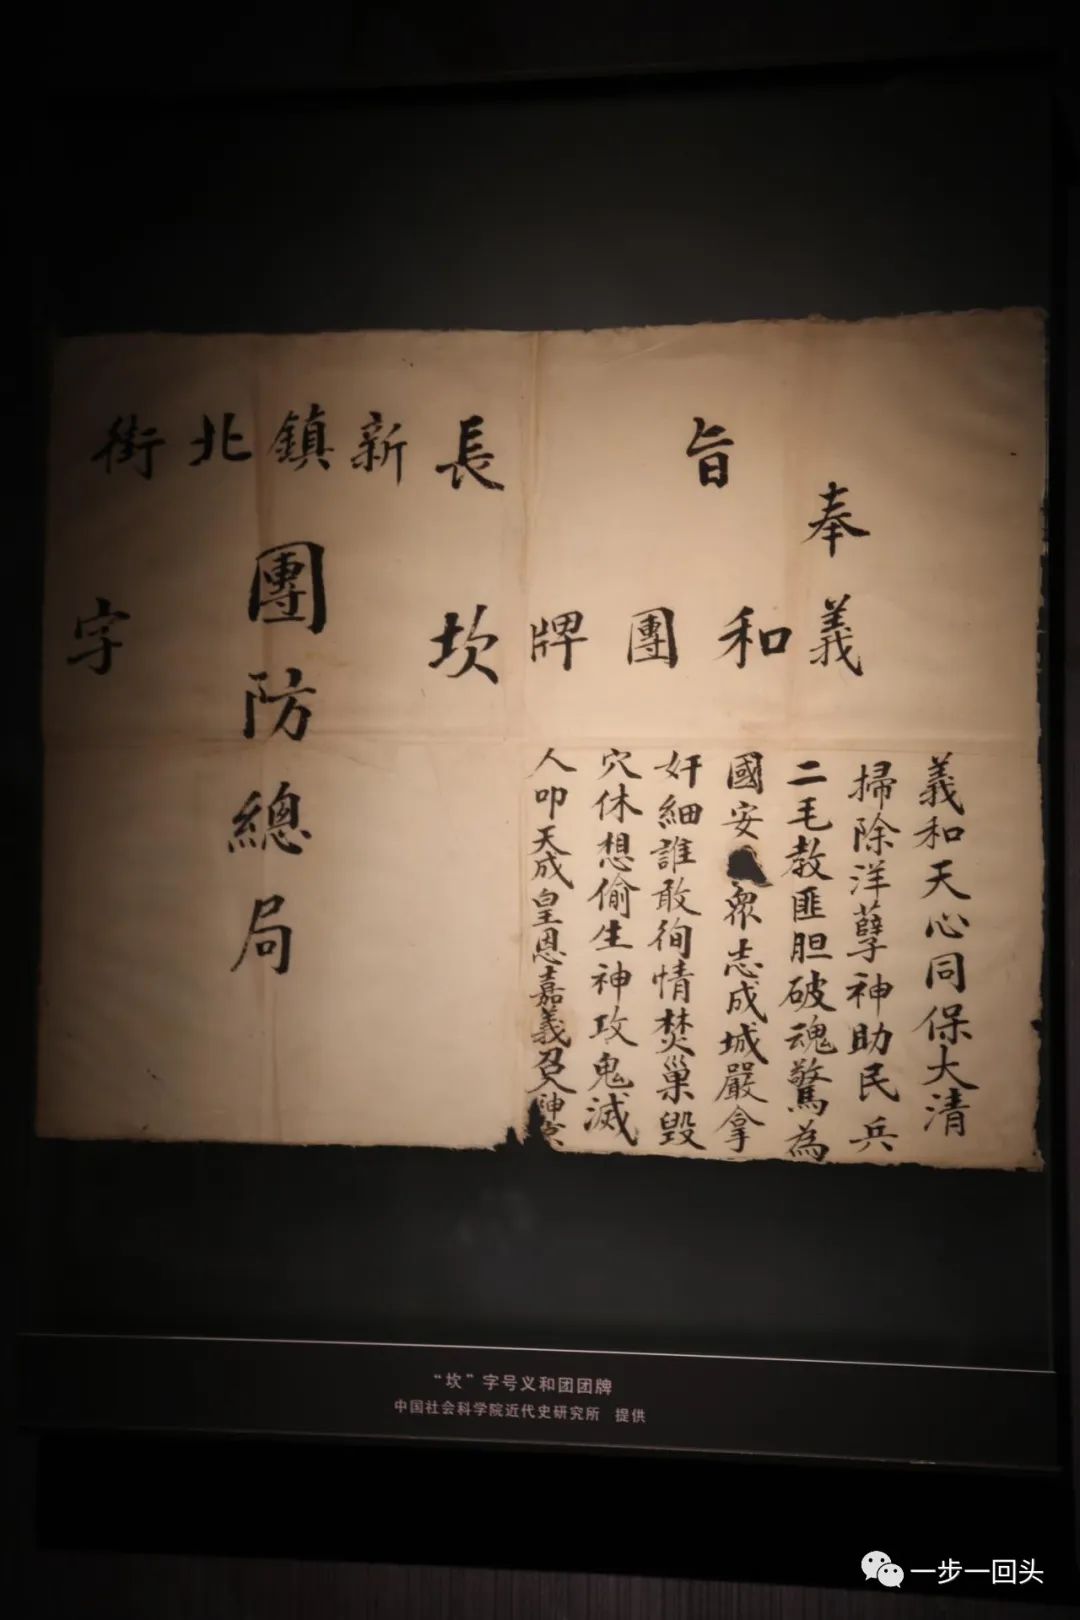 旨
奉
義和團牌
義和天心同保大清
掃除洋孽神助民兵
二毛教匪胆破魂驚為
國安 眾志成城嚴拿
奸細誰敢徇情焚巢毀
穴休想偷生神攻鬼滅
人叩天成皇恩嘉義召入神
長新鎮北街
坎字
團防總局
“坎”字号义和团团牌
中国社会科学院近代史研究所 提供
一步一回头